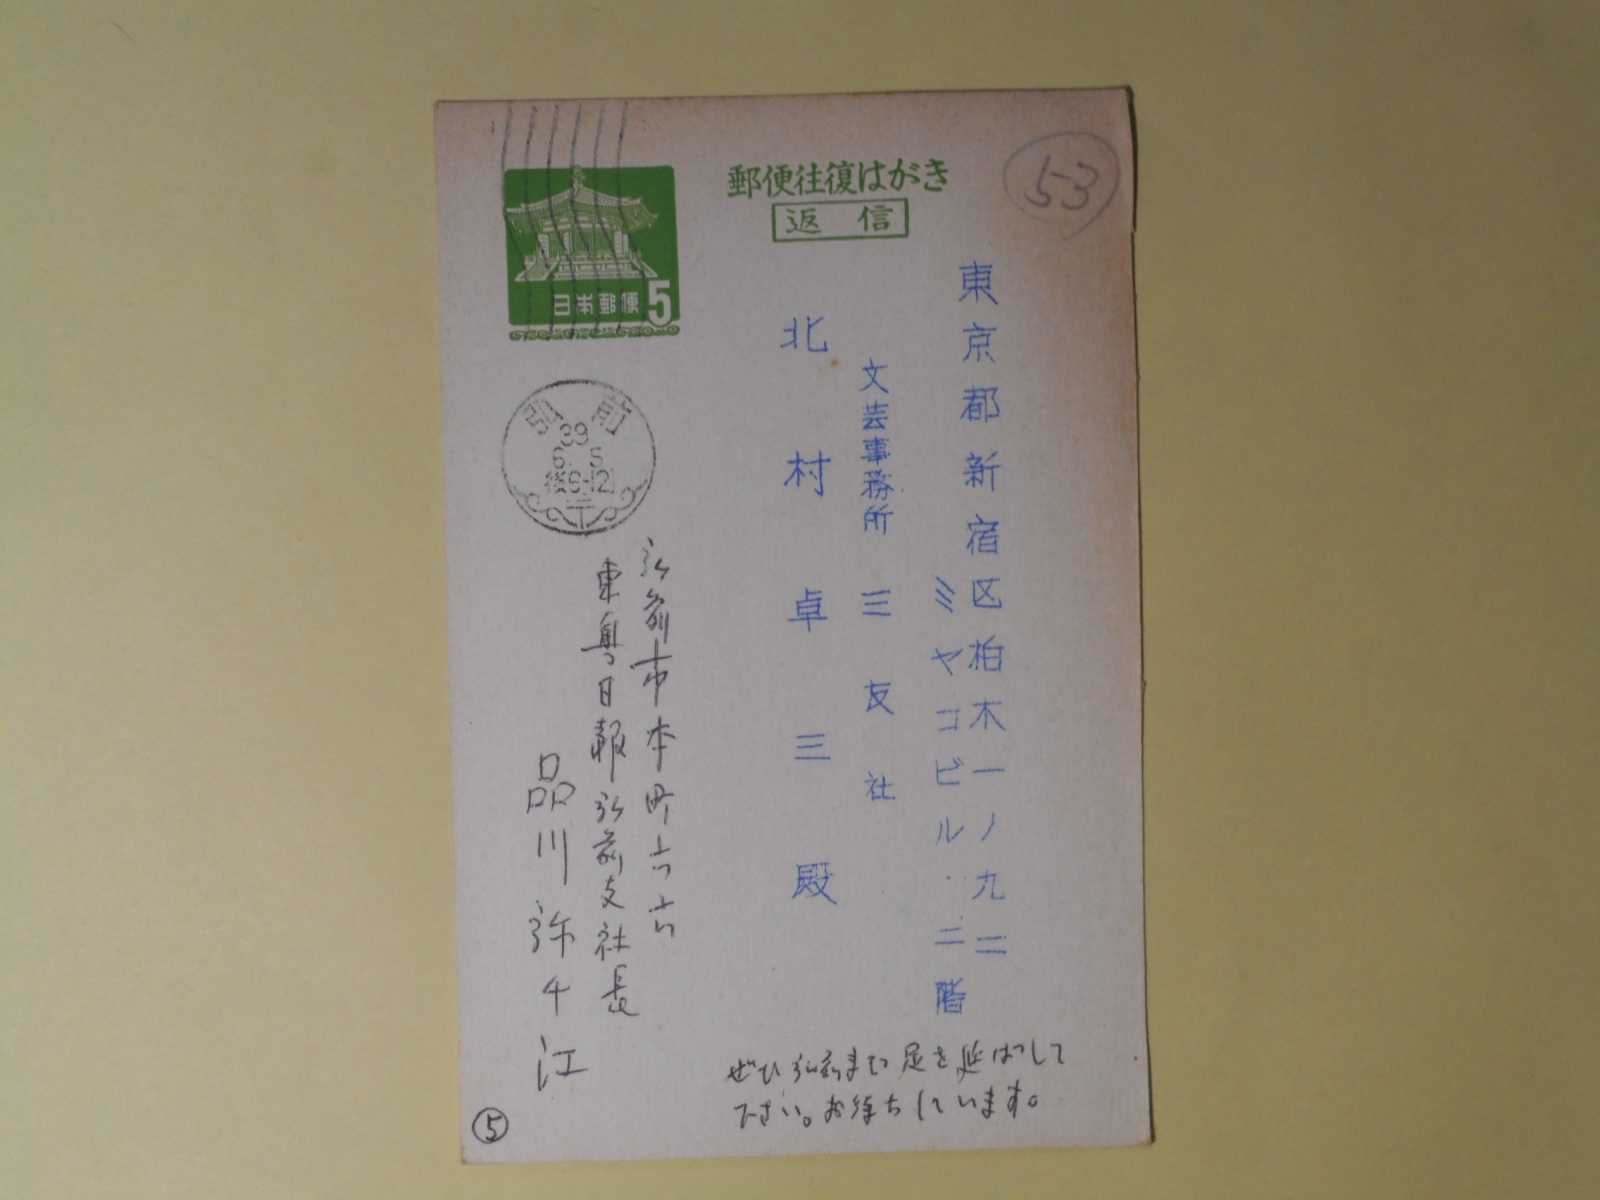 郵便往復はがき
返信
53
日本郵便 5
弘前
39
6. 5
後6-12
東京都新宿区柏木一ノ九二
ミヤコビル・二階
文芸事務所 三友社
北村卓三殿
弘前市本町六六
東奥日報弘前支社長
品川弥千江
ぜひ弘前まで足を延ばして
下さい。お待ちしています。
5